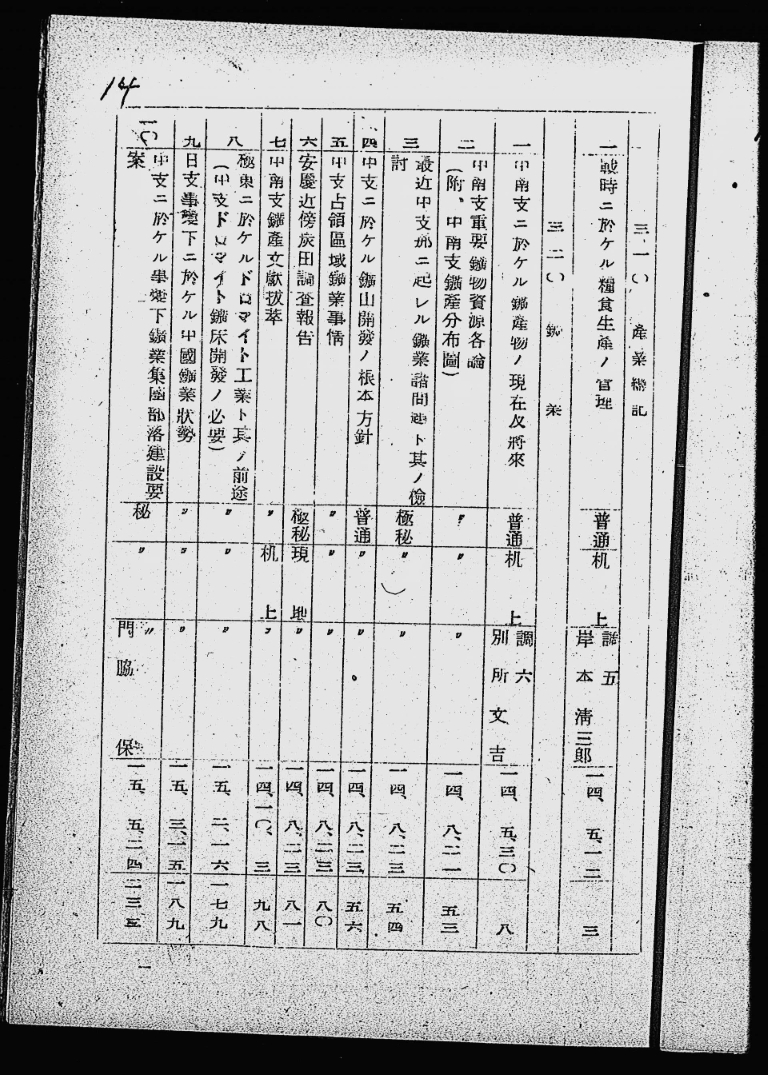 14
三一〇 産業總記
一 戰時ニ於ケル糧食生産ノ管理 普通 机上 調五 岸本清三郎 一四、五、一二 三
三二〇 鑛業
一 中南支ニ於ケル鑛產物ノ現在及將來 普通 机上 調六 別所文吉 一四、五、三〇 八
二 中南支重要鑛物資源各論
(附、中南支鑛產分布圖) 〃 〃 〃 一四、八、二一 五三
三 最近中支那ニ起レル鑛業諸問題ト其ノ檢
討 極秘 〃 〃 一四、八、二三 五四
四 中支ニ於ケル鑛山開發ノ根本方針 普通 〃 〃 一四、八、二三 五六
五 中支占領區域鑛業事情 〃 〃 〃 一四、八、二三 八〇
六 安慶近傍炭田調査報告 極秘 現地 〃 一四、八、二三 八一
七 中南支鑛產文獻拔萃 〃 机上 〃 一四、一〇、三 九八
八 極東ニ於ケルドロマイト工業ト其ノ前途
(中支ドロマイト鑛床開發ノ必要) 〃 〃 〃 一五、二、一六 一七九
九 日支事變下ニ於ケル中國鑛業狀勢 〃 〃 〃 一五、三、一五 一八九
一〇 中支ニ於ケル事變下鑛業集團部落建設要
案 秘 〃 〃 門脇保 一五、五、二四 二三三